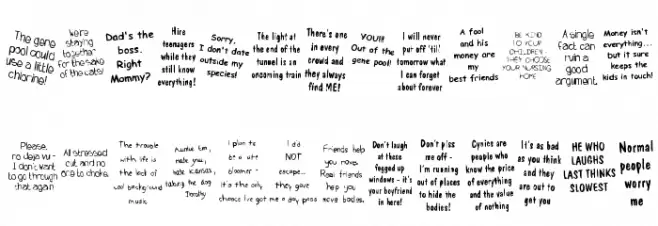 The gene
pool could
use a little
chlorine!
We're
staying
together
for the sake
of the cats!
Dad's the
boss.
Right
Mommy?
Hire
teenagers
while they
still know
everything!
Sorry,
I don't date
outside my
species!
The light at
the end of the
tunnel is an
oncoming train
There's one
in every
crowd and
they always
find ME!
YOU!!!
Out of the
gene pool!
I will never
put off 'til'
tomorrow what
I can forget
about forever
A fool
and his
money are
my
best friends
BE KIND
TO YOUR
CHILDREN-
THEY CHOOSE
YOUR NURSING
HOME
A single
fact can
ruin a
good
argument.
Money isn't
everything...
but it sure
keeps the
kids in touch!
Please,
no deja vu -
I don't want
to go through
that again
All stressed
out and no
one to choke
The trouble
with life is
the lack of
background
music
Auntie Em,
Hate you,
hate Kansas,
taking the dog
Dorothy
I plan to
be a late
bloomer -
it's the only
chance I've got
I did
NOT
escape...
they gave
me a day pass
Friends help
you move.
Real friends
help you
move bodies.
Don't laugh
at these
fogged up
windows - it's
your boyfriend
in here!
Don't piss
me off -
I'm running
out of places
to hide the
bodies!
Cynics are
people who
know the price
of everything
and the value
of nothing
It's as bad
as you think
and they
are out to
get you
HE WHO
LAUGHS
LAST THINKS
SLOWEST
Normal
people
worry
me